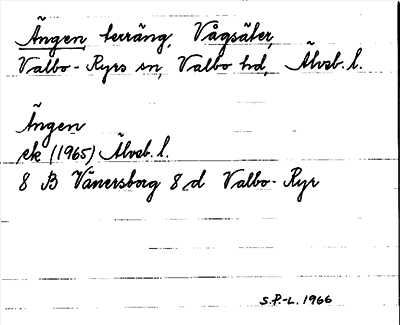 Ängen, terräng, Vågsäter,
Valbo-Ryrs sn, Valbo hd, Älvsb. l.
Ängen
ek (1965) Älvsb. l.
8 B Vänersborg 8 d Valbo-Ryr
S.P.-L. 1966